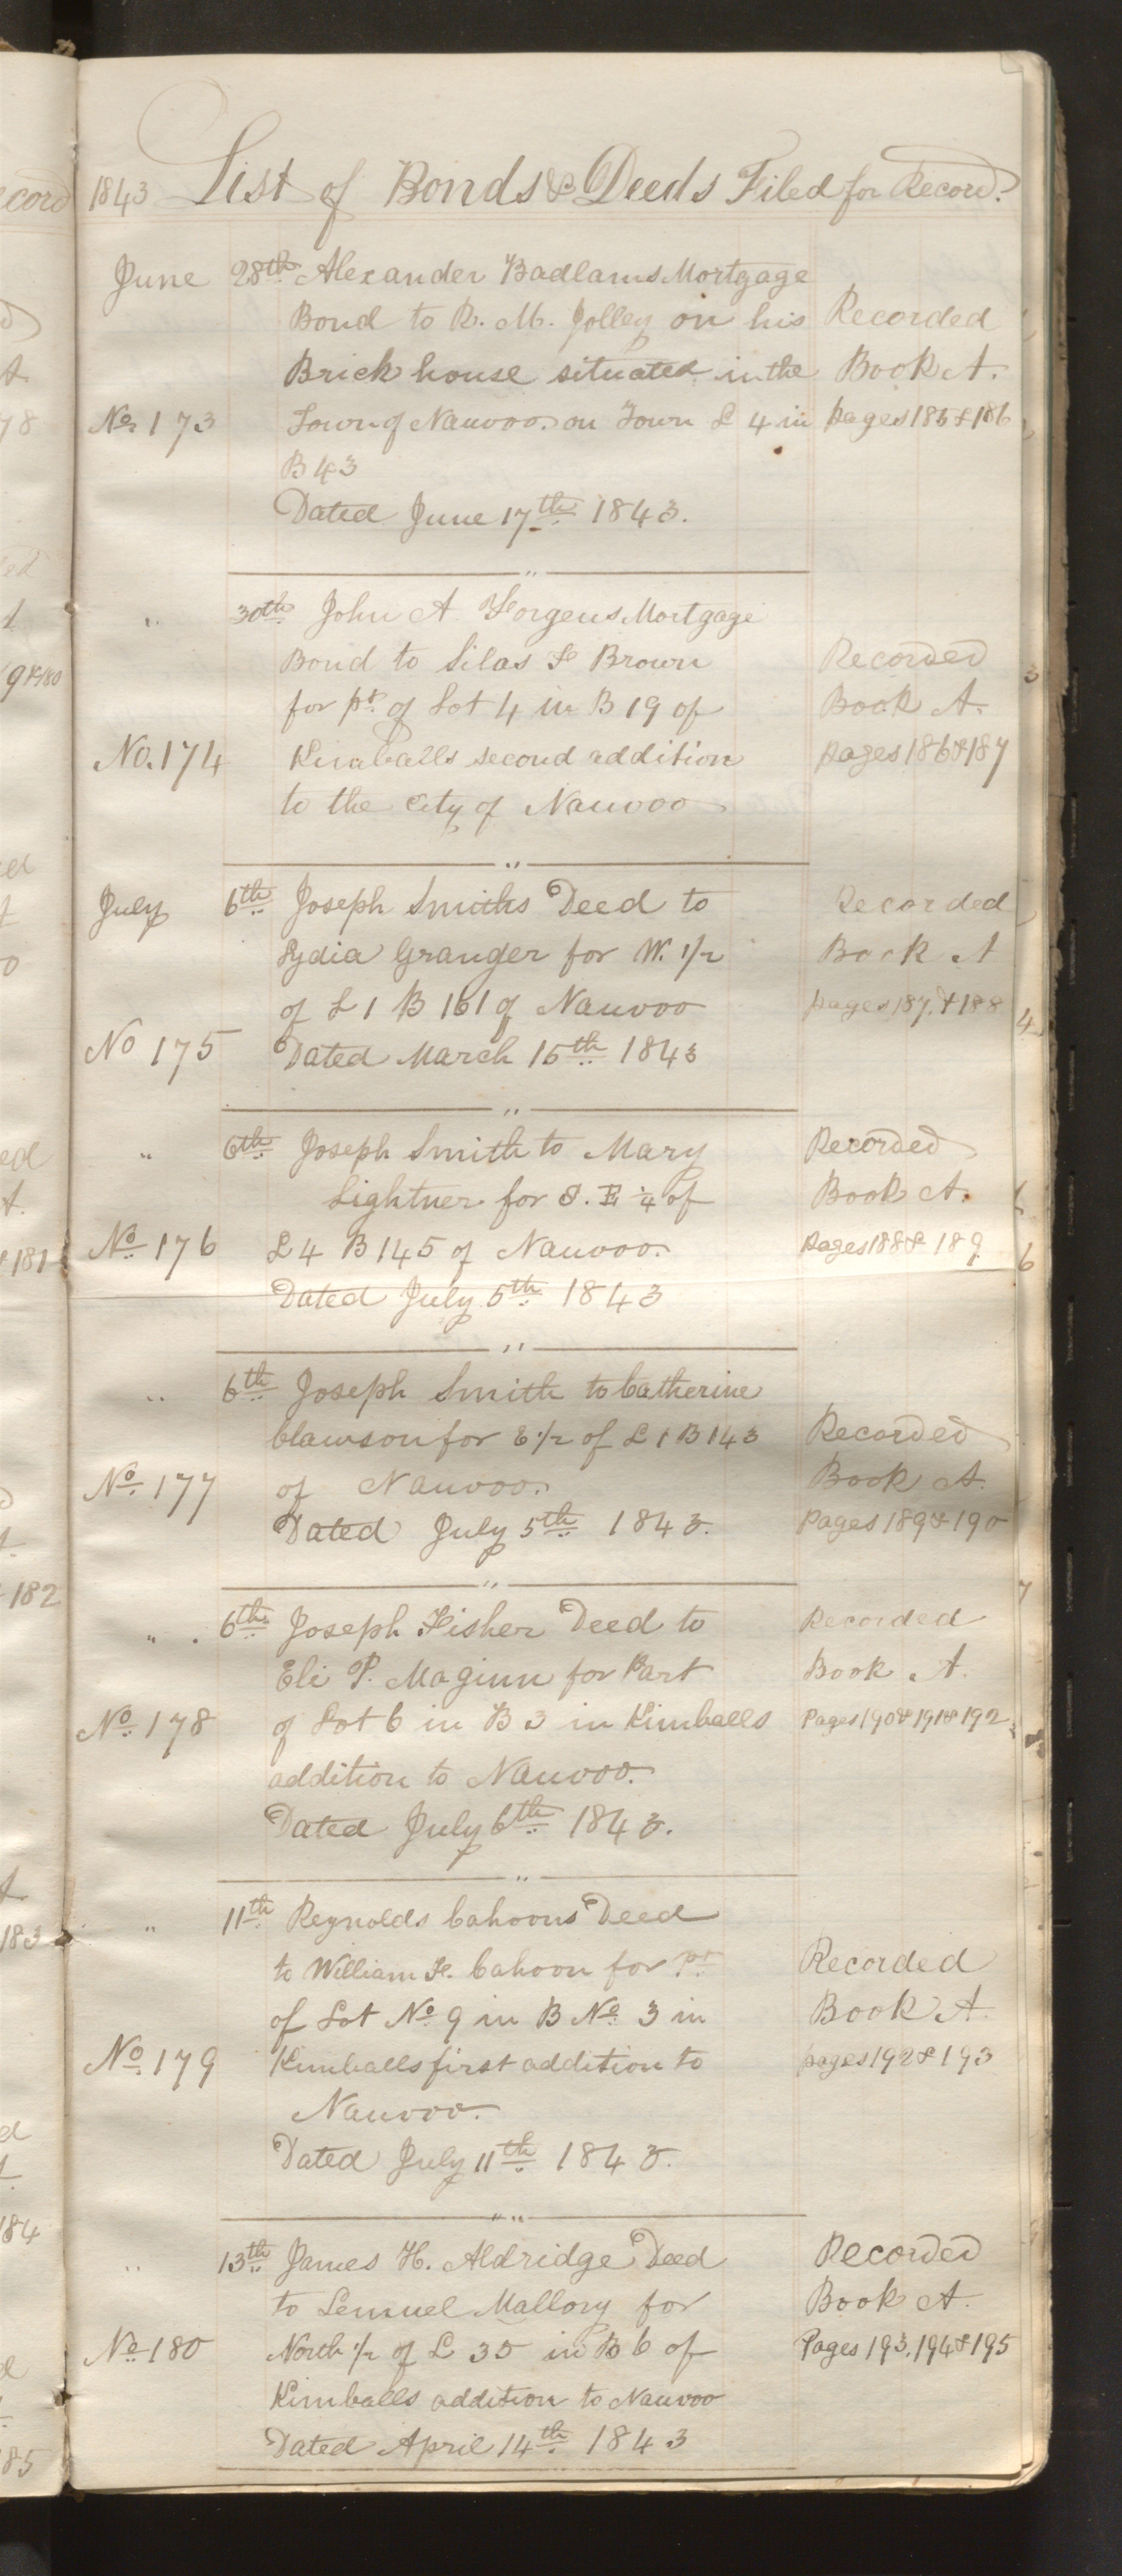 1843 List of Bonds & Deeds Filed for Record.
June 28th Alexander Badlams Mortgage
Bond to R. M. Jolley on his Recorded
Brick house situated in the Book A.
No 173 Town of Nauvoo. on Town L 4 in pages 185 & 186
B 43
Dated June 17th 1843.
" 30th John A Forgeus Mortgage
Bond to Silas F Brown Recorded
for pt. of Lot 4 in B 19 of Book A.
No. 174 Kimballs second addition pages 186 & 187
to the City of Nauvoo
July 6th Joseph Smiths Deed to Recorded
Lydia Granger for W. 1/2 Book A
of L 1 B 161 of Nauvoo pages 187. & 188
No 175 Dated March 15th 1843
" 6th Joseph Smith to Mary Recorded
Lightner for S. E 1/4 of Book A.
No 176 L 4 B 145 of Nauvoo. pages 188 & 189
Dated July 5th 1843
" 6th Joseph Smith to Catherine
Clawson for E 1/2 of L 1 B 143 Recorded
No. 177 of Nauvoo. Book A.
Dated July 5th 1843. Pages 189 & 190
" 6th Joseph Fisher Deed to Recorded
Eli P. Maginn for Part Book A.
No. 178 of Lot 6 in B 3 in Kimballs Pages 190 & 191 & 192
addition to Nauvoo.
Dated July 6th 1843.
" 11th Reynolds Cahoons Deed
to William F. Cahoon for pt Recorded
of Lot No 9 in B No 3 in Book A.
No. 179 Kimballs first addition to pages 192 & 193
Nauvoo.
Dated July 11th 1843.
" 13th James H. Aldridge Deed Recorded
to Lemuel Mallory for Book A.
No 180 North 1/2 of L 35 in B 6 of Pages 193. 194 & 195
Kimballs addition to Nauvoo
Dated April 14th 1843